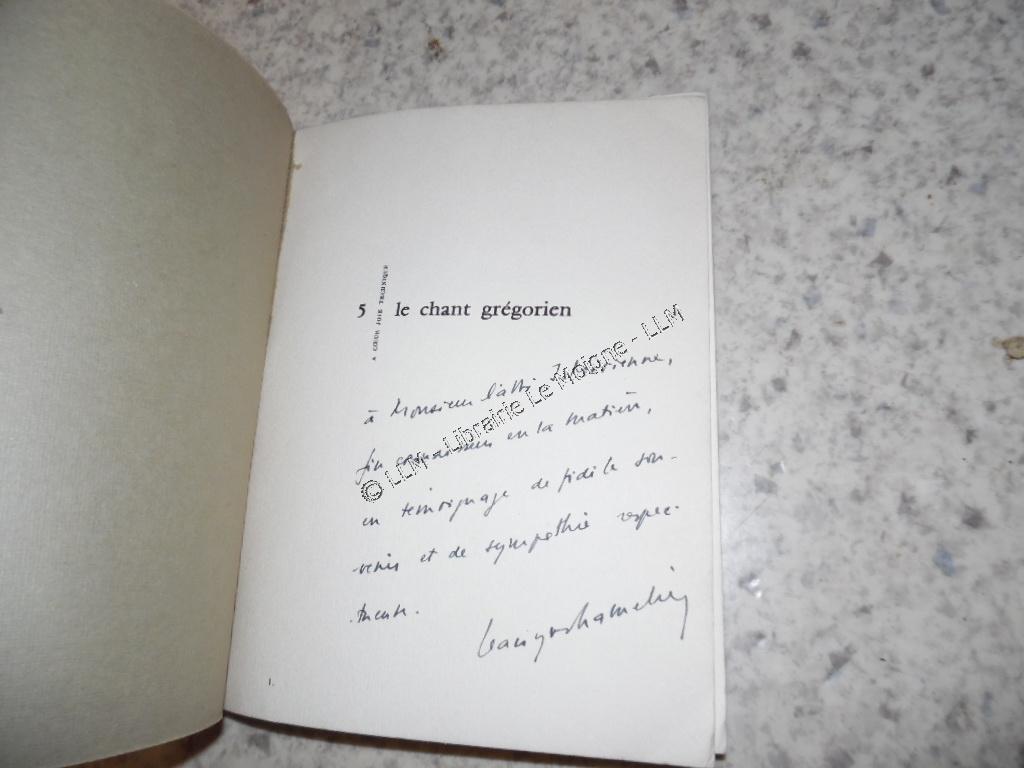 A CŒUR JOIE TECHNIQUE
5 le chant grégorien
à Monsieur l'abbé
fin connaisseur en la matière,
en témoignage de fidèle sou-
-venir et de sympathie respec-
-tueuse.
© LLM - Librairie Le Moigne - LLM
1.